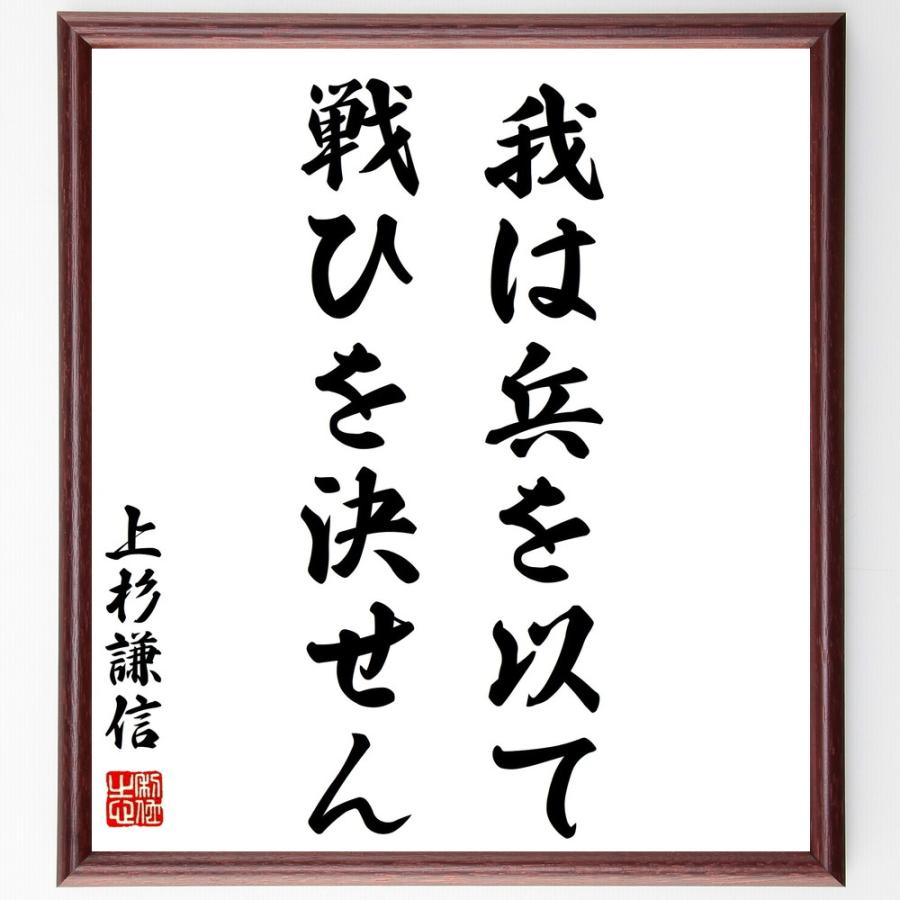 我は兵を以て
戦ひを決せん
上杉謙信